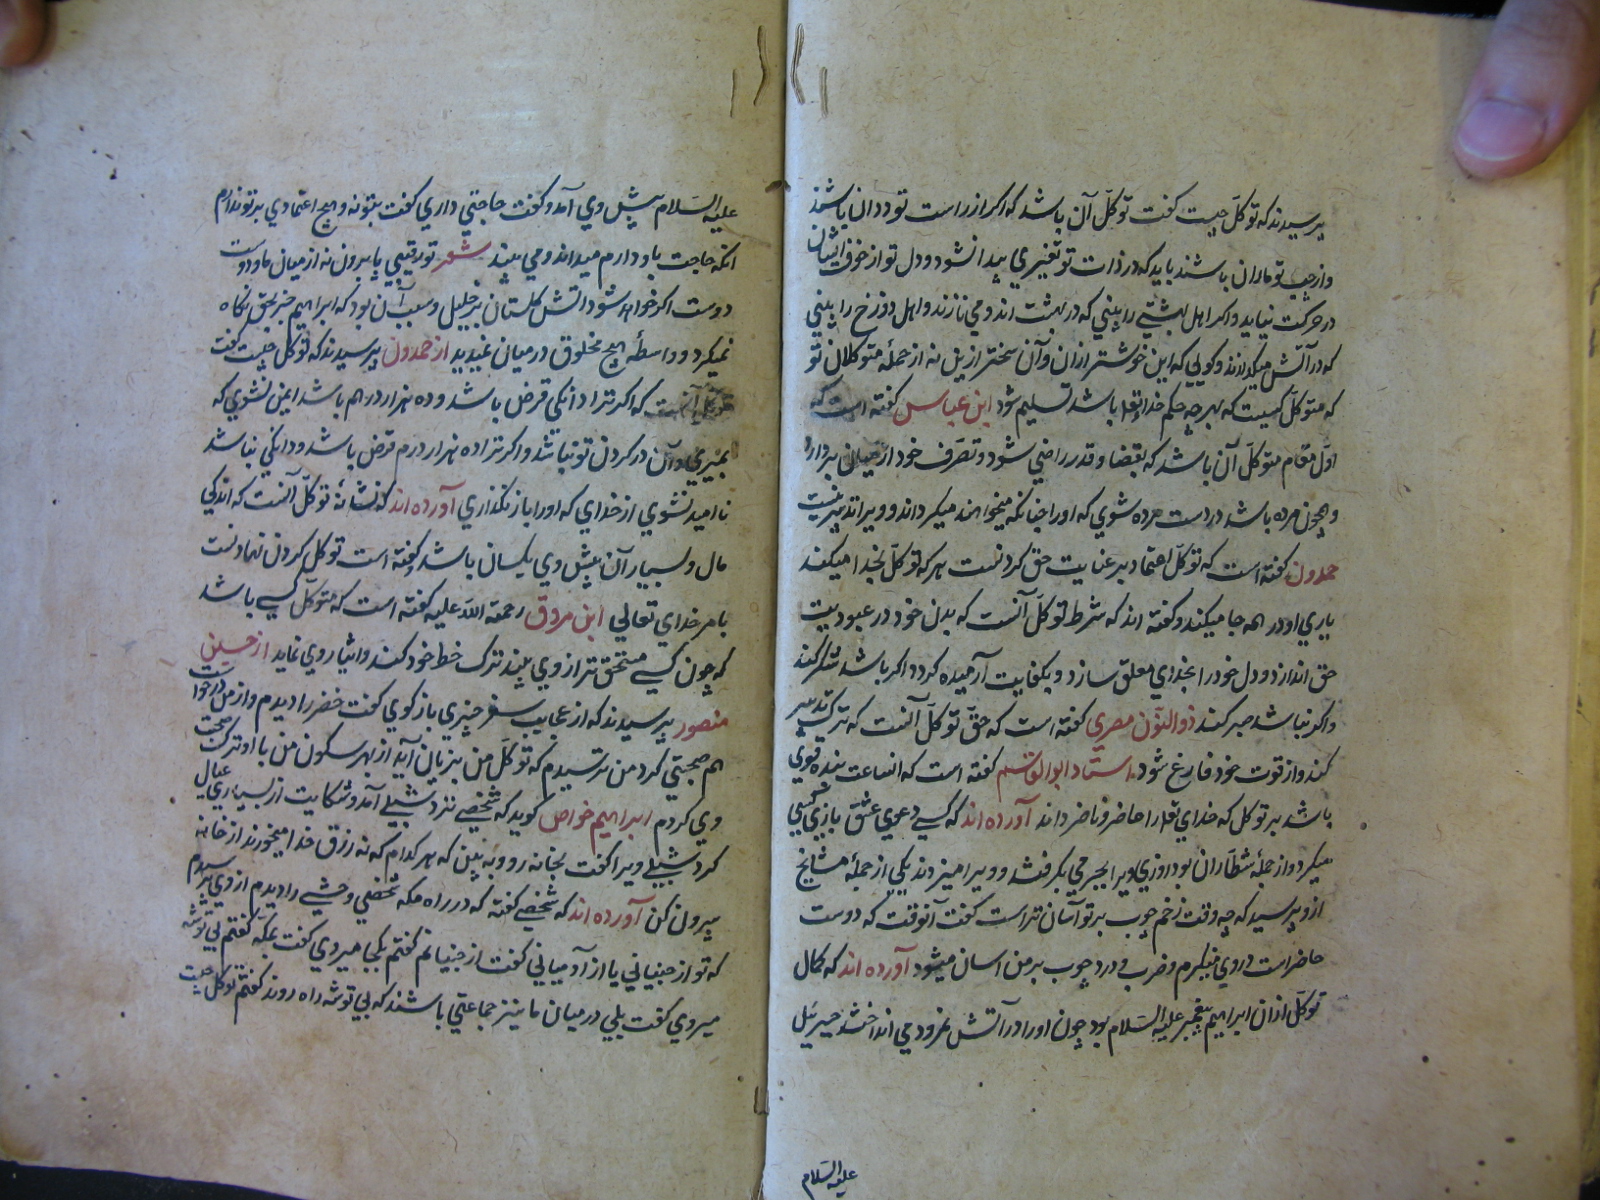 پرسیدند که توکّل چیست گفت توکّل آن باشد که اگر از راست تو ددان باشند
و از چپ تو ماران باشند باید که در ذات تو تغیری پیدا نشود و دل تو از خوف ایشان
در حرکت نیاید و اگر اهل بهشتی را بینی که در بهشت اند و می نازند و اهل دوزخ را بینی
که در آتش میگدازند و گویی که این خوشتر از ان و آن سختتر ازین نه از جملهٔ متوکلان تو
که متوکّل کیست که بهر چه حکم خدایتعلی باشد تسلیم شود ابن عباس گفته است که
اوّل مقام متوکّل آن باشد که بقضا و قدر راضی شود و تصرّف خود از میان بردارد
و همچون مرده باشد در دست مرده شوی که او را چنانکه میخواهند میگرداند و ویرا تدبیر نیست
حمدون گفته است که توکّل اعتماد بر عنایت حق کردنست هر که توکّل بخدا میکند
یاری او در همه جا میکند و گفته اند که شرط توکّل آنست که بدن خود در عبودیت
حق اندازد و دل خود را بخدای معلّق سازد و بکفایت آرمیده گردد اگر باشد شکر کند
و اگر نباشد صبر کند ذوالنّون مصری گفته است که حقّ توکّل آنست که ترک تدبیر
کند و از قوت خود فارغ شود استاد ابوالقاسم گفته است که انساعت بنده قوی
باشد بر توکل که خدای تعلی را حاضر و ناضر داند آورده اند که کسی دعوی عشق بازی کسی
میکرد و از جملهٔ شطّاران بود اوزی ویرا بجرمی بگرفتند و ویرا میزدند یکی از جملهٔ مشایخ
ازو پرسید که چه وقت زخم چوب بر تو آسان تر است گفت آنوقت که دوست
حاضر است در وی مینگرم و ضرب و درد چوب بر من اسان میشود آورده اند که کمال
توکّل از ان ابراهیم پیغمبر علیه السّلام بود چون او را در آتش نمرود می انداختند جبرئیل
علیه السلام
علیه السّلام پیش وی آمد و گفت حاجتی داری گفت بتو نه و هیچ اعتمادی بر تو ندارم
انکه حاجت باو دارم میداند و می بیند شعر تو رقیبی پا برون نه از میان ما و دوست
دوست اگر خواهد شود اتش گلستان بر خلیل و سبب آن بود که ابراهیم جز بحق نگاه
نمیکرد و واسطهٔ هیچ مخلوق در میان نمیدید از حمدون پرسیدند که توکّل چیست گفت
توکّل آنست که اگر ترا دانگی قرض باشد و ده هزار درهم باشد ایمن نشوی که
بمیری و آن در گردن تو نباشد و اگر ترا ده هزار درم قرض باشد و دانگی نباشد
نا امید نشوی از خدای که او را باز نگذاری آورده اند که نشانهٔ توکّل آنست که اندکی
مال و بسیار آن پیش وی یکسان باشد و گفته است توکل گردن نهادنست
بامر خدای تعالی ابن مروق رحمة الله علیه گفته است که متوکّل کسی باشد
که چون کسی مستحق تر از وی بیند ترک خط خود کند و ایثار وی نماید از حسین
منصور پرسیدند که از عجایب سفر چیزی باز گوی گفت خضر را دیدم و از من درخواست
هم صحبتی کرد من ترسیدم که توکّل من بزیان آید از بهر سکون من با او ترک صحبت
وی کردم ابراهیم خواص گوید که شخصی نزد شبلی آمد و شکایت از بسیاری عیال
کرد شبلی ویرا گفت بخانه رو و به بین که هر کدام که نه رزق خدا میخورند از خانه
بیرون کن آورده اند که شخصی گفته که در راه مکه شخصی وحشی را دیدم از وی پرسیدم
که تو از جنیانی یا از آدمیانی گفت از جنیانم گفتم بکجا میروی گفت بمکّه گفتم بی توشه
میروی گفت بلی در میان ما نیز جماعتی باشند که بی توشه راه روند گفتم توکّل چیست